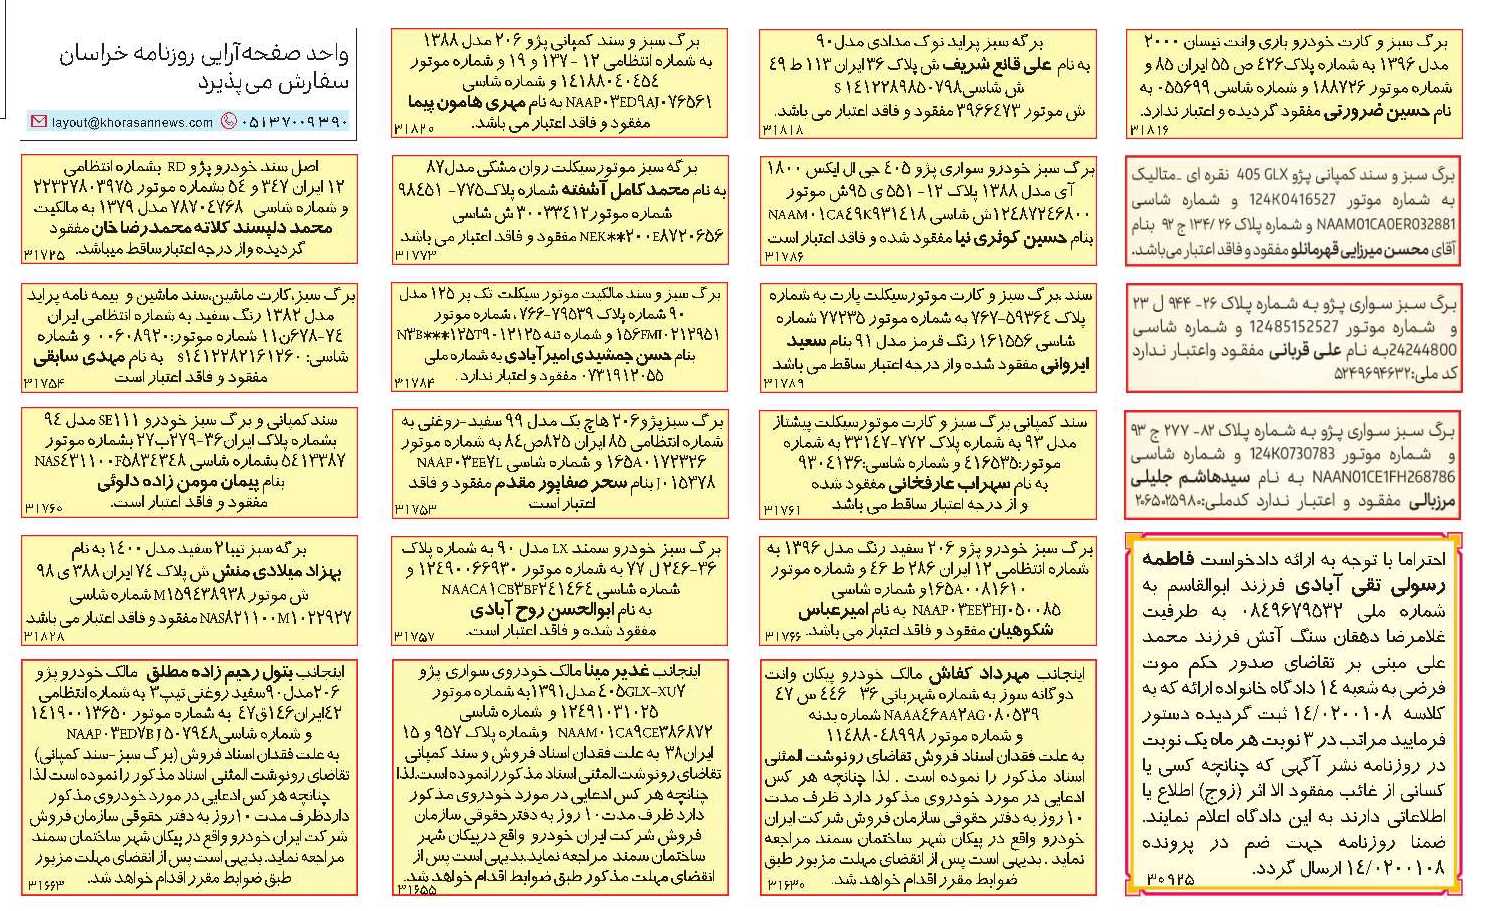 برگ سبز و کارت خودرو باری وانت نیسان ۲۰۰۰
مدل ۱۳۹۶ به شماره پلاک۴۲۶ ص ۵۵ ایران ۸۵ و
شماره موتور ۱۸۸۷۲۶ و شماره شاسی ۰۵۵۶۹۹ به
نام حسین ضرورتی مفقود گردیده و اعتبار ندارد.
۳۱۸۱۶
برگ سبز و سند کمپانی پژو 405 GLX نقره ای _متالیک
به شماره موتور 124K0416527 و شماره شاسی
NAAM01CA0ER032881 و شماره پلاک ۲۶ /۱۳۴ ج ۹۲ بنام
آقای محسن میرزایی قهرمانلو مفقود و فاقد اعتبار می‌باشد.
برگ سبز سواری پژو به شماره پلاک ۲۶- ۹۴۴ ل ۲۳
و شماره موتور 12485152527 و شماره شاسی
24244800به نام علی قربانی مفقود واعتبار ندارد
کد ملی:۵۲۴۹۶۹۴۶۳۲
برگ سبز سواری پژو به شماره پلاک ۸۲- ۲۷۷ ج ۹۳
و شماره موتور 124K0730783 و شماره شاسی
NAAN01CE1FH268786 به نام سیدهاشم جلیلی
مرزبالی مفقود و اعتبار ندارد کدملی:۲۰۶۵۰۲۵۹۸۰
احتراما با توجه به ارائه دادخواست فاطمه
رسولی تقی آبادی فرزند ابوالقاسم به
شماره ملی ۰۸۴۹۶۷۹۵۳۲ به طرفیت
غلامرضا دهقان سنگ آتش فرزند محمد
علی مبنی بر تقاضای صدور حکم موت
فرضی به شعبه ۱۴ دادگاه خانواده ارائه که به
کلاسه ۱۴/۰۲۰۰۱۰۸ ثبت گردیده دستور
فرمایید مراتب در ۳ نوبت هر ماه یک نوبت
در روزنامه نشر آگهی که چنانچه کسی یا
کسانی از غائب مفقود الا اثر (زوج) اطلاع یا
اطلاعاتی دارند به این دادگاه اعلام نمایند.
ضمنا روزنامه جهت ضم در پرونده
۱۴/۰۲۰۰۱۰۸ ارسال گردد.
۳۰۹۲۵
برگه سبز پراید نوک مدادی مدل۹۰
به نام علی قانع شریف ش پلاک ۳۶ایران ۱۱۳ ط ۴۹
ش شاسی۱۴۱۲۲۸۹۸۵۰۷۹۸ S
ش موتور ۳۹۶۶۴۷۳ مفقود و فاقد اعتبار می باشد.
۳۱۸۱۸
برگ سبز خودرو سواری پژو ۴۰۵ جی ال ایکس ۱۸۰۰
آی مدل ۱۳۸۸ پلاک ۱۲- ۵۵۱ ی ۹۵ش موتور
۱۲۴۸۷۲۴۶۸۰۰ش شاسی NAAM۰۱CA۴۹K۹۳۱۴۱۸
بنام حسین کوثری نیا مفقود شده و فاقد اعتبار است
۳۱۷۸۶
سند ،برگ سبز و کارت موتورسیکلت پارت به شماره
پلاک ۵۹۳۶۴-۷۶۷ به شماره موتور ۷۷۲۳۵ شماره
شاسی ۱۶۱۵۵۶ رنگ قرمز مدل ۹۱ بنام سعید
ایروانی مفقود شده واز درجه اعتبار ساقط می باشد
۳۱۷۸۹
سند کمپانی برگ سبز و کارت موتورسیکلت پیشتاز
مدل ۹۳ به شماره پلاک ۷۷۲-۳۳۱۴۷ به شماره
موتور:۴۱۶۵۳۵ و شماره شاسی:۹۳۰۴۱۳۶
به نام سهراب عارفخانی مفقود شده
و از درجه اعتبار ساقط می باشد
۳۱۷۶۱
برگ سبز خودرو پژو ۲۰۶ سفید رنگ مدل ۱۳۹۶ به
شماره انتظامی ۱۲ ایران ۲۸۶ ط ۴۶ و شماره موتور
۱۶۵A۰۰۸۱۶۱۰و شماره شاسی
NAAP۰۳EE۳HJ۰۵۰۰۸۵ به نام امیرعباس
شکوهیان مفقود و فاقد اعتبار می باشد.
۳۱۷۶۶
اینجانب مهرداد کفاش مالک خودرو پیکان وانت
دوگانه سوز به شماره شهربانی ۳۶ ۴۴۶ س ۴۷
NAAA۴۶AA۲AG۰۸۰۵۳۹ شماره بدنه
و شماره موتور ۱۱۴۸۸۰۴۸۹۹۸
به علت فقدان اسناد فروش تقاضای رونوشت المثنی
اسناد مذکور را نموده است . لذا چنانچه هر کس
ادعایی در مورد خودروی مذکور دارد ظرف مدت
۱۰ روز به دفتر حقوقی سازمان فروش شرکت ایران
خودرو واقع در پیکان شهر ساختمان سمند مراجعه
نماید . بدیهی است پس از انقضای مهلت مزبور طبق
ضوابط مقرر اقدام خواهد شد.
۳۱۶۳۰
برگ سبز و سند کمپانی پژو ۲۰۶ مدل ۱۳۸۸
به شماره انتظامی ۱۲ -۱۳۷ و ۱۹ و شماره موتور
۱۴۱۸۸۰۴۰۴۵۴ و شماره شاسی
NAAP۰۳ED۹AJ۰۷۶۵۶۱ به نام مهری هامون پیما
مفقود و فاقد اعتبار می باشد.
۳۱۸۲۰
برگه سبز موتورسیکلت روان مشکی مدل۸۷
به نام محمد کامل آشفته شماره پلاک۷۷۵- ۹۸۴۵۱
شماره موتور۳۰۰۳۳۴۱۲ ش شاسی
NEK**۲۰۰E۸۷۲۰۶۵۶ مفقود و فاقد اعتبار می باشد
۳۱۷۷۳
برگ سبز و سند مالکیت موتور سیکلت تک پر ۱۲۵ مدل
۹۰ شماره پلاک ۷۹۵۳۹-۷۶۶، شماره موتور
۱۵۶FMI۰۲۱۲۹۵۱ و شماره تنه N۳B***۱۲۵T۹۰۱۲۱۲۵
بنام حسن جمشیدی امیرآبادی به شماره ملی
۰۷۳۱۹۱۲۰۵۵ مفقود و اعتبار ندارد.
۳۱۷۸۴
برگ سبزپژو۲۰۶ هاچ بک مدل ۹۹ سفید-روغنی به
شماره انتظامی ۸۵ ایران ۸۲۵ص۸۴ به شماره موتور
۱۶۵A۰۱۷۲۳۲۶ و شماره شاسی NAAP۰۳EE۷L
J۰۱۵۳۷۸ بنام سحر صفاپور مقدم مفقود و فاقد
اعتبار است
۳۱۷۵۳
برگ سبز خودرو سمند LX مدل ۹۰ به شماره پلاک
۳۶-۲۴۶ ل ۷۷ به شماره موتور ۱۲۴۹۰۰۶۶۹۳۰ و
شماره شاسی NAACA۱CB۳BF۲۴۱۴۶۴
به نام ابوالحسن روح آبادی
مفقود شده و فاقد اعتبار است.
۳۱۷۵۷
اینجانب غدیر مینا مالک خودروی سواری پژو
۴۰۵GLX-XU۷ مدل ۱۳۹۱به شماره موتور
۱۲۴۹۱۰۳۱۰۲۵ و شماره شاسی
NAAM۰۱CA۹CE۳۸۶۸۷۲ وشماره پلاک ۹۵۷ و ۱۵
ایران۳۸ به علت فقدان اسناد فروش و سند کمپانی
تقاضای رونوشت المثنی اسناد مذکور رانموده است.لذا
چنانچه هر کس ادعایی در مورد خودروی مذکور
دارد ظرف مدت ۱۰ روز به دفتر حقوقی سازمان
فروش شرکت ایران خودرو واقع درپیکان شهر
ساختمان سمند مراجعه نماید.بدیهی است پس از
انقضای مهلت مذکور طبق ضوابط اقدام خواهد شد.
۳۱۶۵۵
واحد صفحه‌آرایی روزنامه خراسان
سفارش می‌پذیرد
layout@khorasannews.com ۰۵۱۳۷۰۰۹۳۹۰
اصل سند خودرو پژو RD بشماره انتظامی
۱۲ ایران ۳۴۷ و ۵۴ بشماره موتور ۲۲۳۲۷۸۰۳۹۷۵
و شماره شاسی ۷۸۷۰۴۷۶۸ مدل ۱۳۷۹ به مالکیت
محمد دلپسند کلاته محمدرضا خان مفقود
گردیده واز درجه اعتبارساقط میباشد.
۳۱۷۲۵
برگ سبز،کارت ماشین،سند ماشین و بیمه نامه پراید
مدل ۱۳۸۲ رنگ سفید به شماره انتظامی ایران
۷۴-۶۷۸ن۱۱ شماره موتور:۰۰۶۰۸۹۲۰ و شماره
شاسی: S۱۴۱۲۲۸۲۱۶۱۲۶۰ به نام مهدی سابقی
مفقود و فاقد اعتبار است
۳۱۷۵۴
سندکمپانی و برگ سبز خودرو SE۱۱۱ مدل ۹۴
بشماره پلاک ایران۳۶-۲۷۹ب۲۷ بشماره موتور
۵۴۱۳۳۸۷ بشماره شاسی NAS۴۳۱۱۰۰F۵۸۳۴۳۴۸
بنام پیمان مومن زاده دلوئی
مفقود و فاقد اعتبار است.
۳۱۷۶۰
برگه سبز تیبا۲ سفید مدل ۱۴۰۰ به نام
بهزاد میلادی منش ش پلاک ۷۴ ایران ۳۸۸ ی ۹۸
ش موتور M۱۵۹۴۳۸۹۳۸ شماره شاسی
NAS۸۲۱۱۰۰M۱۰۲۲۹۲۷ مفقود و فاقد اعتبار می باشد
۳۱۸۲۸
اینجانب بتول رحیم زاده مطلق مالک خودرو پژو
۲۰۶مدل ۹۰سفید روغنی تیپ۳ به شماره انتظامی
۴۲ایران۱۴۶ق۴۷ به شماره موتور ۱۴۱۹۰۰۱۳۶۵۰
و شماره شاسی NAAP۰۳ED۷BJ۵۰۷۹۴۸
به علت فقدان اسناد فروش (برگ سبز-سند کمپانی)
تقاضای رونوشت المثنی اسناد مذکور را نموده است لذا
چنانچه هر کس ادعایی در مورد خودروی مذکور
داردظرف مدت ۱۰روز به دفتر حقوقی سازمان فروش
شرکت ایران خودرو واقع در پیکان شهر ساختمان سمند
مراجعه نماید. بدیهی است پس از انقضای مهلت مزبور
طبق ضوابط مقرر اقدام خواهد شد.
۳۱۶۶۳